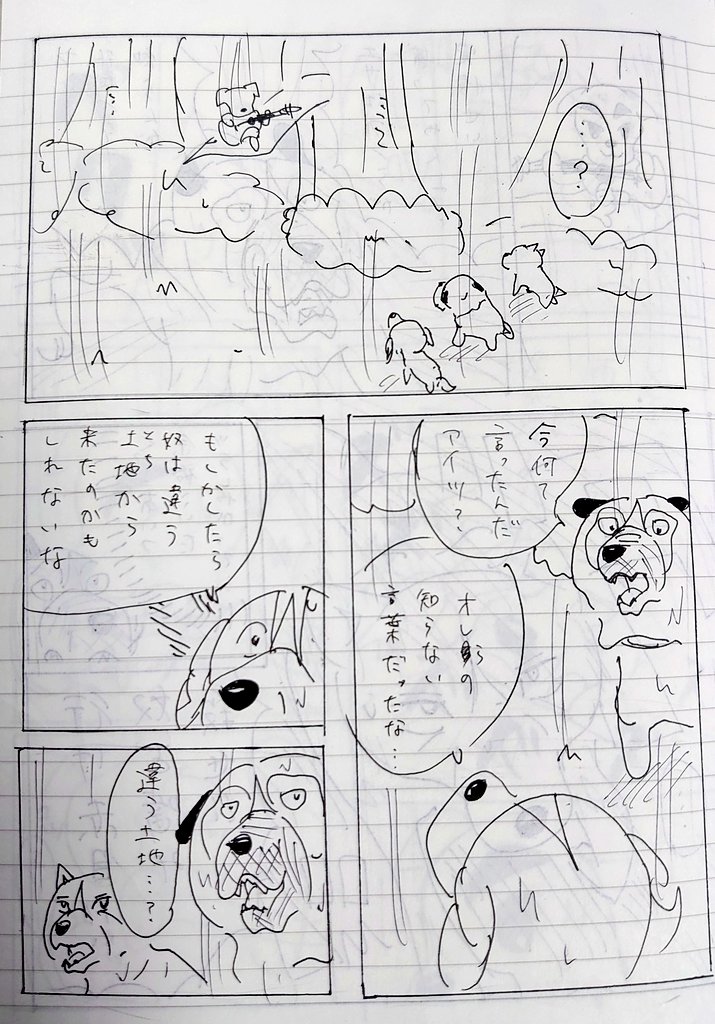 ……?
今何て
言ったんだ
アイツ?
オレ達の
知らない
言葉だったな…
もしかしたら
奴は違う
とち
土地から
来たのかも
しれないな
違う土地…?